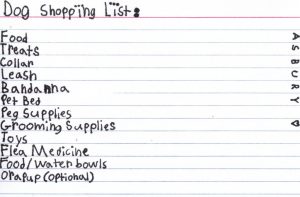 Dog Shopping List:
Food
Treats
Collar
Leash
Bandanna
Pet Bed
Peg Supplies
Grooming Supplies
Toys
Flea Medicine
Food/Water bowls
Orapup (optional)
A
S
B
U
R
Y